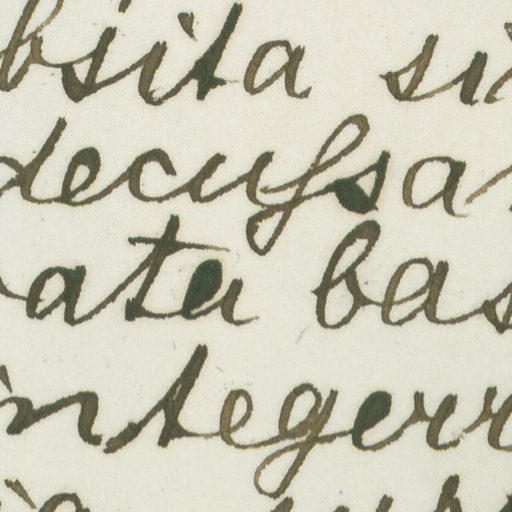 bsita si
decuſsa
ata bas
integerr